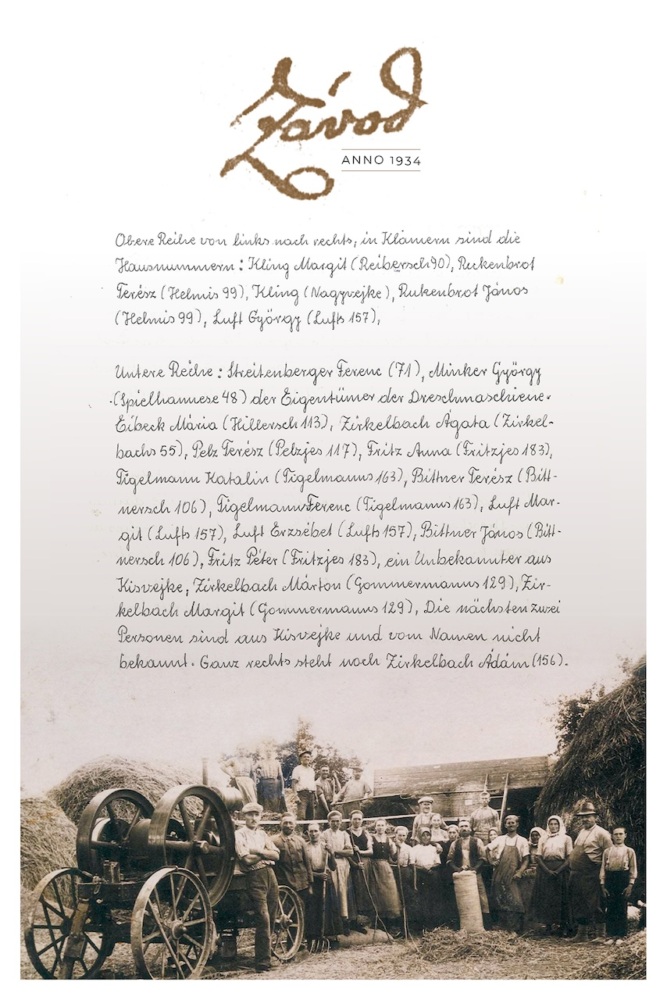 Závod
ANNO 1934
Obere Reihe von links nach rechts, in Klamern sind die
Hausnummern: Kling Margit (Reibersch 90), Ruckenbrot
Terész (Helmis 99), Kling (Nagyvejke), Rukenbrot János
(Helmis 99), Luft György (Lufts 157),
Untere Reihe: Streitenberger Ferenc (71), Minker György
(Spielhannese 48) der Eigentümer der Dreschmaschiene.
Eibeck Mária (Hillersch 113), Zirkelbach Ágata (Zirkel-
bachs 55), Pelz Terész (Pelzjes 117), Fritz Anna (Fritzjes 183),
Tigelmann Katalin (Tigelmanns 163), Bittner Terész (Bitt-
nersch 106), Tigelmann Ferenc (Tigelmanns 163), Luft Mar-
git (Lufts 157), Luft Erzsébet (Lufts 157), Bittner János (Bitt-
nersch 106), Fritz Péter (Fritzjes 183), ein Unbekannter aus
Kisvejke, Zirkelbach Márton (Gommermanns 129), Zir-
kelbach Margit (Gommermanns 129), Die nächsten zwei
Personen sind aus Kisvejke und vom Namen nicht
bekannt. Ganz rechts steht noch Zirkelbach Ádám (156).